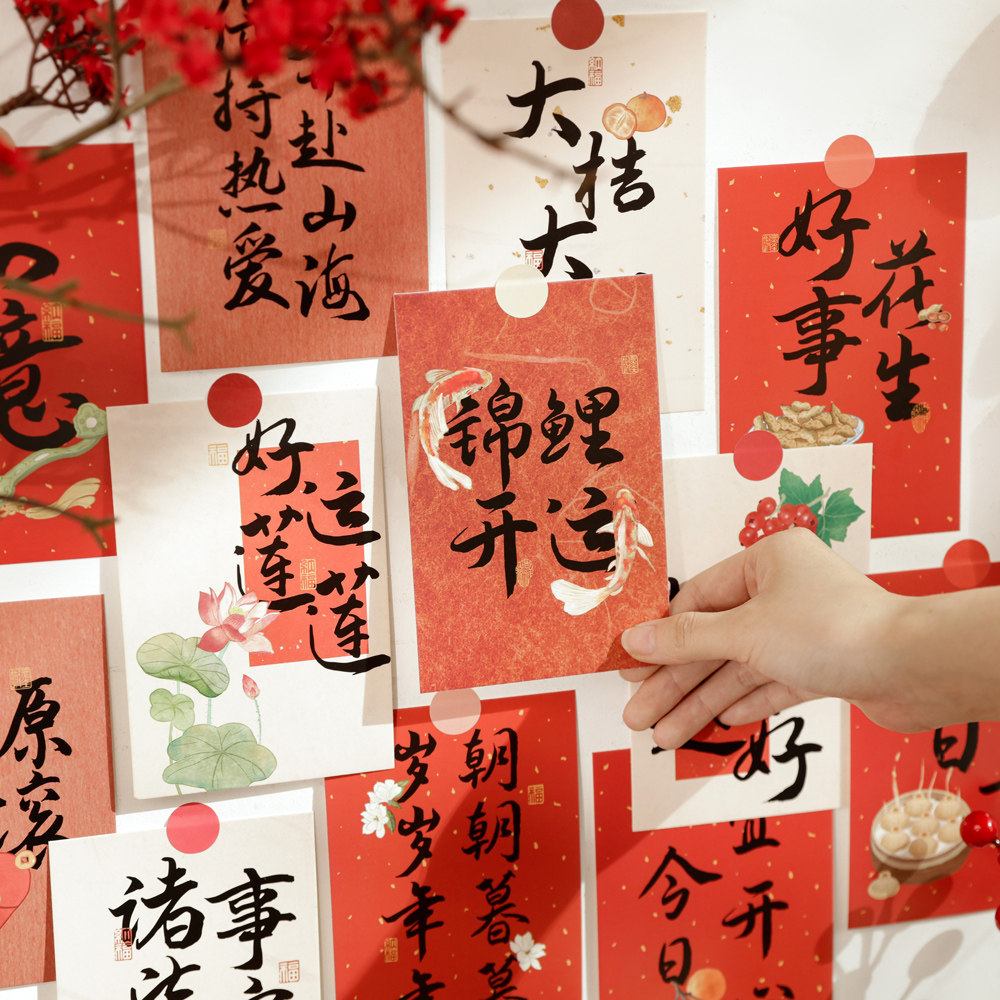 赴山海
持热爱
大桔
大
好事
花生
意
锦鲤
开运
好运
莲莲
好
原
滚
诸事
朝朝暮暮
岁岁年年
今日
宜开
日